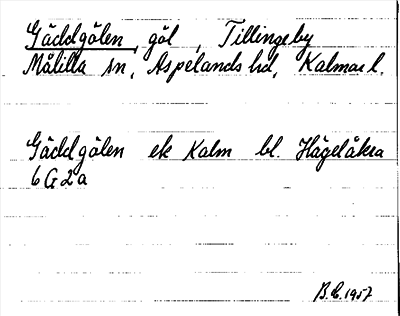 Gäddgölen, göl, Tillingeby
Målilla sn, Aspelands hd, Kalmar l.
Gäddgölen ek Kalm bl. Hägelåkra
6 G 2 a
B.L. 1957